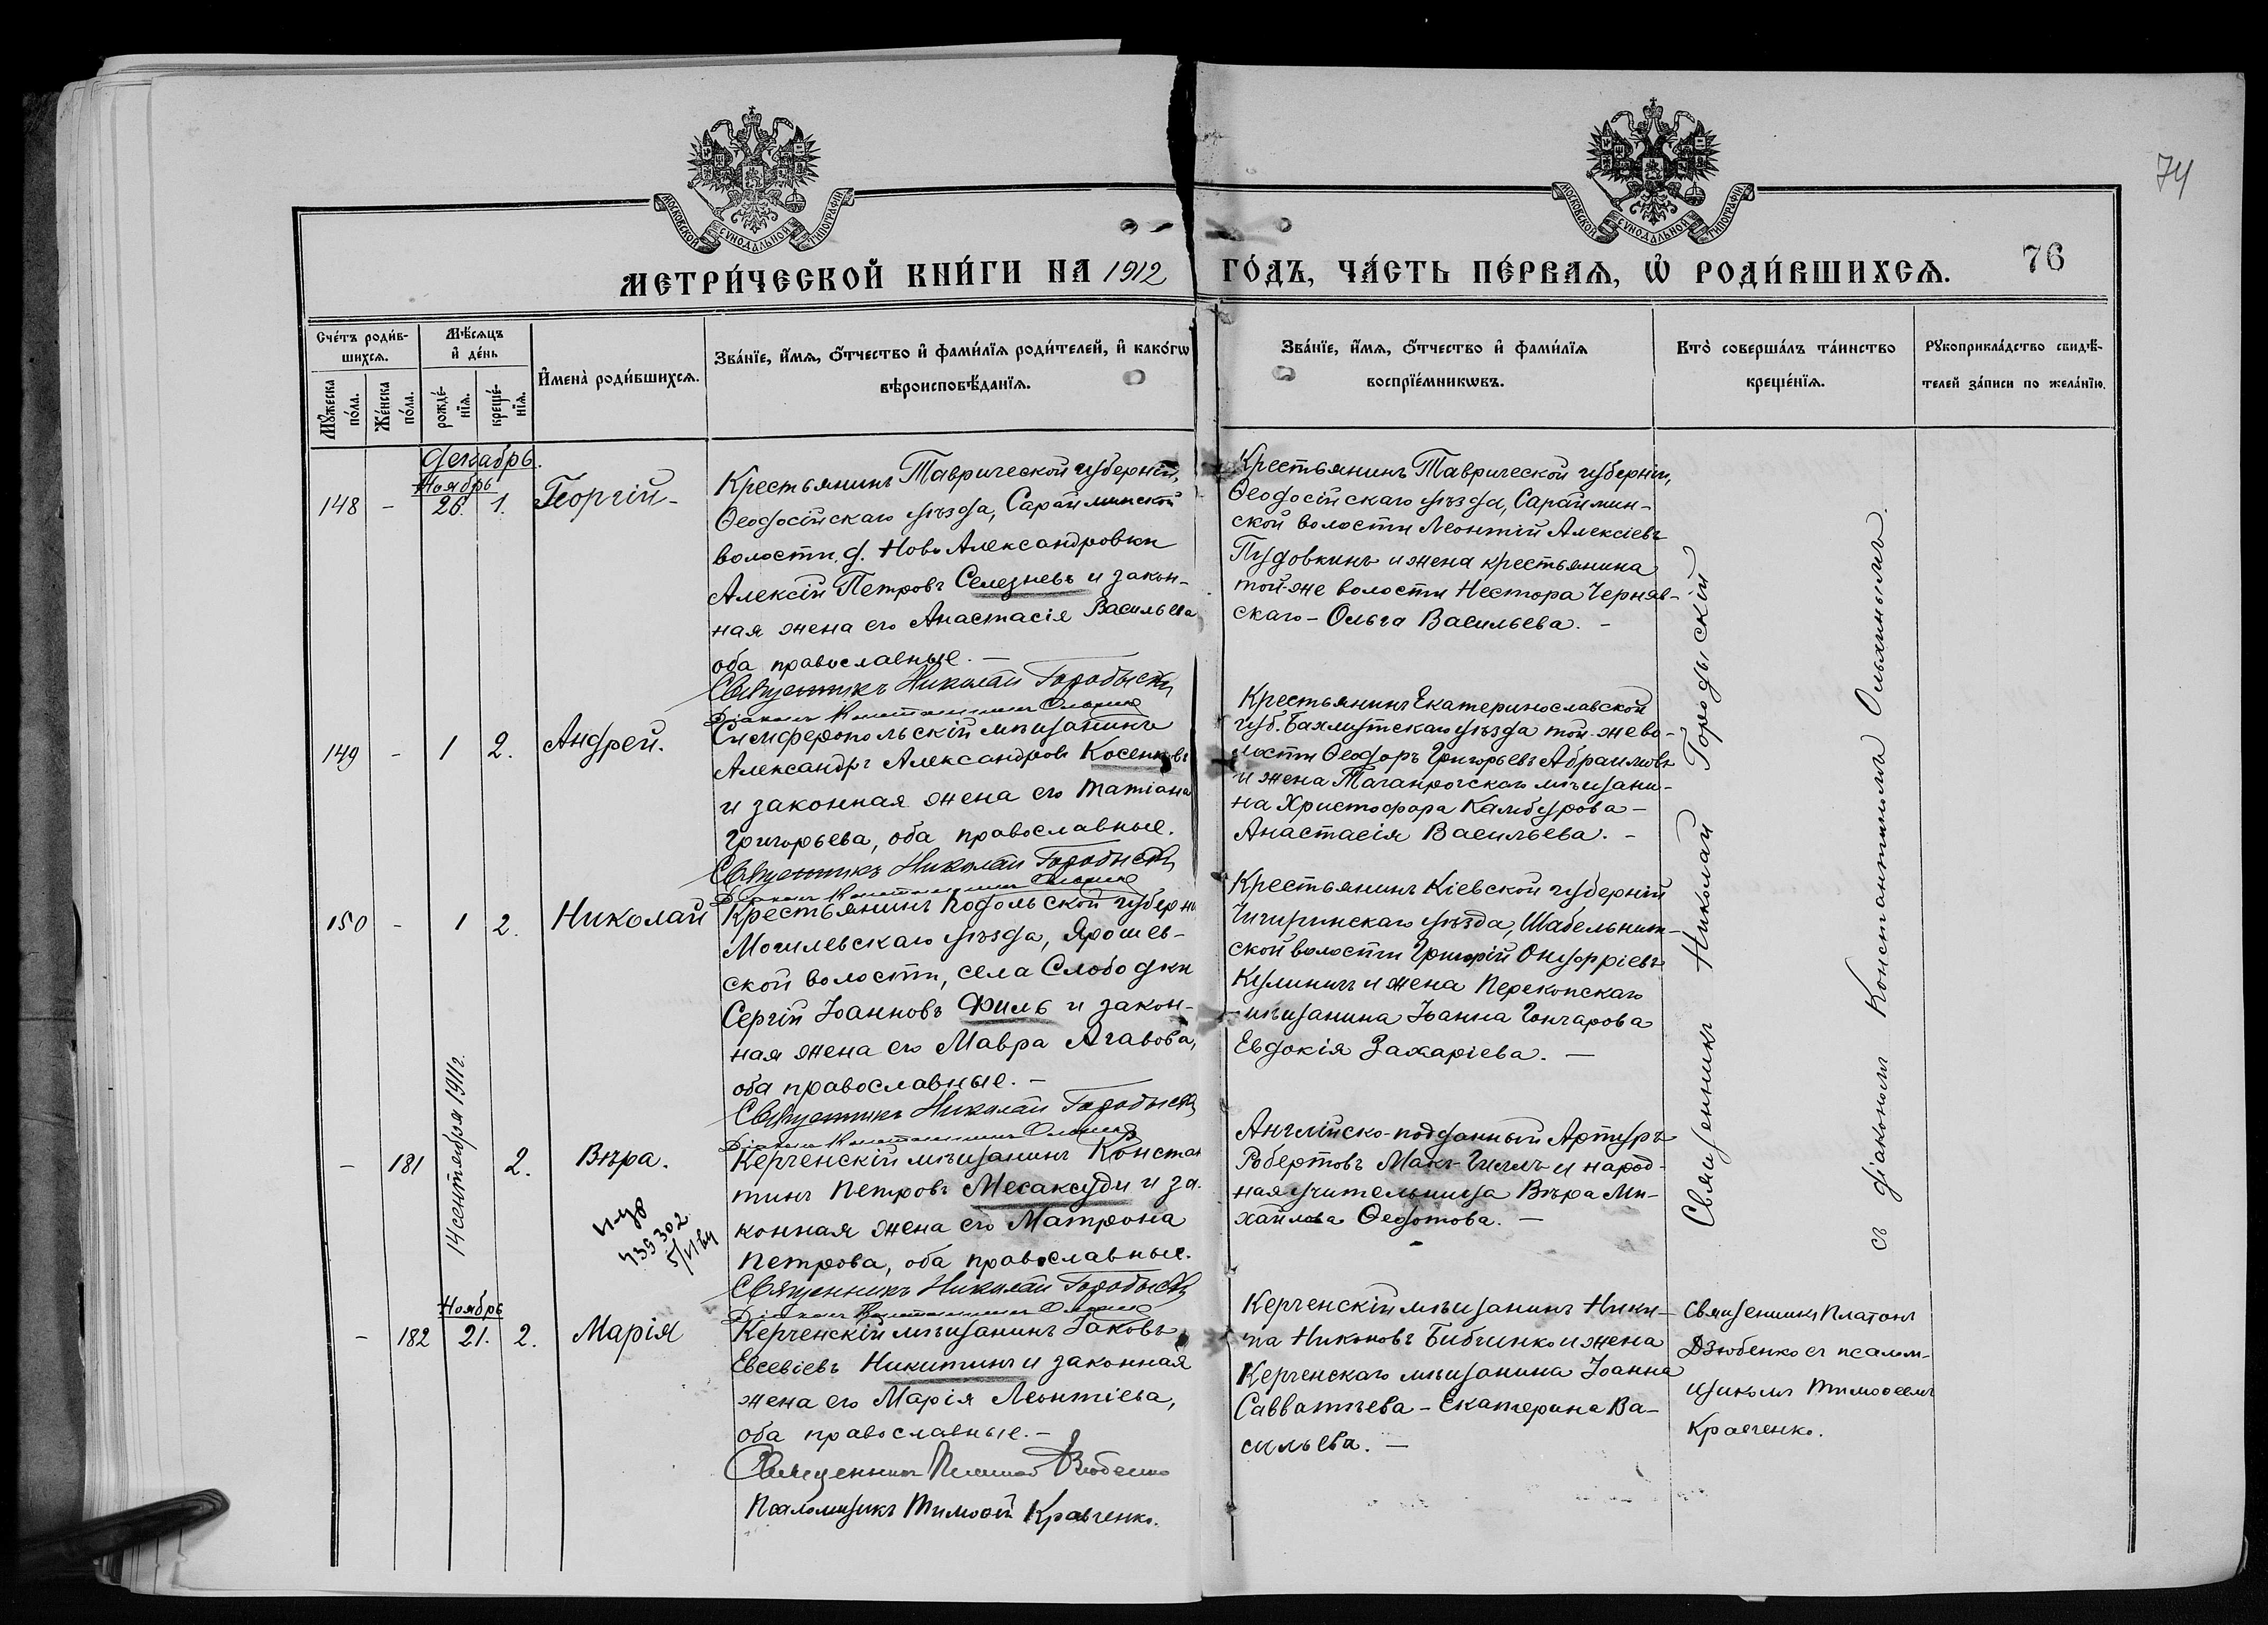 74
МОСКОВСКОЙ СѴНОДАЛЬНОЙ ТИПОГРАФІИ
МОСКОВСКОЙ СѴНОДАЛЬНОЙ ТИПОГРАФІИ
МЕТРИ́ЧЕСКОЙ КНИ́ГИ НА 1912 ГО́ДЪ, ЧА́СТЬ ПЕ́РВАѦ, Ѡ҆ РОДИ́ВШИХСѦ. 76
Сче́тъ роди́в-
шихсѧ.
Мꙋ́жеска по́ла.
Же́нска по́ла.
Мѣ́сѧцъ и҆ де́нь
рожде́-нїѧ.
креще́-нїѧ.
И҆мена̀ роди́вшихсѧ.
Зва́нїе, и҆́мѧ, ѻ҆́тчество и҆ фами́лїѧ роди́телей, и҆ како́гѡ
вѣроисповѣ́данїѧ.
Зва́нїе, и҆́мѧ, ѻ҆́тчество и҆ фами́лїѧ
воспрїе́мникѡвъ.
Кто̀ соверша́лъ та́инство
креще́нїѧ.
Рꙋкоприкла́дство свидѣ́-
телей за́писи по жела́нїю.
Декабрь.
Ноябрь
148 - 26. 1. Георгій -
Крестьянинъ Таврической губерніи,
Ѳеодосійскаго уѣзда, Сарайминской
волости, д. Ново Александровки
Алексій Петровъ Селезневъ и закон-
ная жена его Анастасія Васильева
оба православные. -
Священникъ Николай Городыскій
Діаконъ Константинъ Ольхинъ
Крестьянинъ Таврической губерніи,
Ѳеодосійскаго уѣзда, Сараймин-
ской волости Леонтій Алексіевъ
Пудовкинъ и жена крестьянина
той-же волости Нестора Черняв-
скаго - Ольга Васильева. -
149 - 1 2. Андрей.
Симферопольскій мѣщанинъ
Александръ Александровъ Косенковъ
и законная жена его Татіана
Григорьева, оба православные.
Священникъ Николай Городыскій
Діаконъ Константинъ Ольхинъ
Крестьянинъ Екатеринославской
губ. Бахмутскаго уѣзда той-же во-
лости Ѳеодоръ Григорьевъ Абраимовъ
и жена Таганрогскаго мѣщани-
на Христофора Камбурова -
Анастасія Васильева. -
150 - 1 2. Николай
Крестьянинъ Подольской губерн
Могилевскаго уѣзда, Ярошев-
ской волости, села Слободки
Сергій Іоанновъ Филь и закон-
ная жена его Мавра Агавова,
оба православные. -
Священникъ Николай Городыскій
Діаконъ Константинъ Ольхинъ
Крестьянинъ Кіевской губерніи
Чигиринскаго уѣзда, Шабельнит-
ской волости Григорій Онуфріевъ
Кулиничъ и жена Перекопскаго
мѣщанина Іоанна Гончарова
Евдокія Захаріева. -
- 181 14 сентября 1911 г. 2. Вѣра.
439302
Керченскій мѣщанинъ Констан
тинъ Петровъ Месаксуди и за-
конная жена его Матрона
Петрова, оба православные.
Священникъ Николай Городыскій
Діаконъ Константинъ Ольхинъ
Англійско-подданный Артуръ
Робертовъ Макъ-Гилль и народ-
ная учительница Вѣра Ми-
хайлова Ѳедотова. -
Священникъ Николай Городыскій
съ діакономъ Константиномъ Ольхинымъ.
Ноябрь
- 182 21. 2. Марія
Керченскій мѣщанинъ Іаковъ
Евсевіевъ Никитинъ и законная
жена его Марія Леонтіева,
оба православные. -
Священникъ Платонъ Дзюбенко
Псаломщикъ Тимоѳей Кравченко.
Керченскій мѣщанинъ Ники-
та Никоновъ Бибченко и жена
Керченскаго мѣщанина Іоанна
Савватѣева - Екатерина Ва-
сильева. -
Священникъ Платонъ
Дзюбенко съ псалом-
щикомъ Тимоѳеемъ
Кравченко.